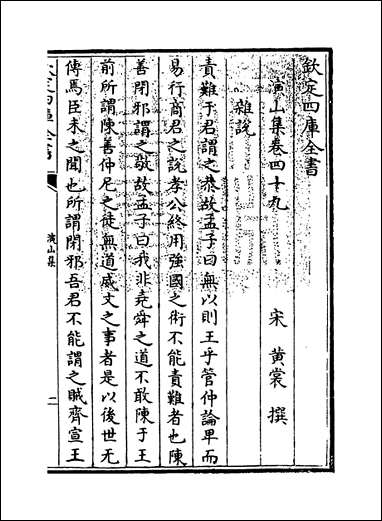 欽定四庫全書
演山集卷四十九
宋 黄裳 撰
雜說
責難于君謂之恭故孟子曰無以則王乎管仲論卑而
易行商君之說孝公終用強國之術不能責難者也陳
善閉邪謂之敬故孟子曰我非堯舜之道不敢陳于王
前所謂陳善仲尼之徒無道威文之事者是以後世无
傳焉臣未之聞也所謂閉邪吾君不能謂之賊齊宣王
演山集
一